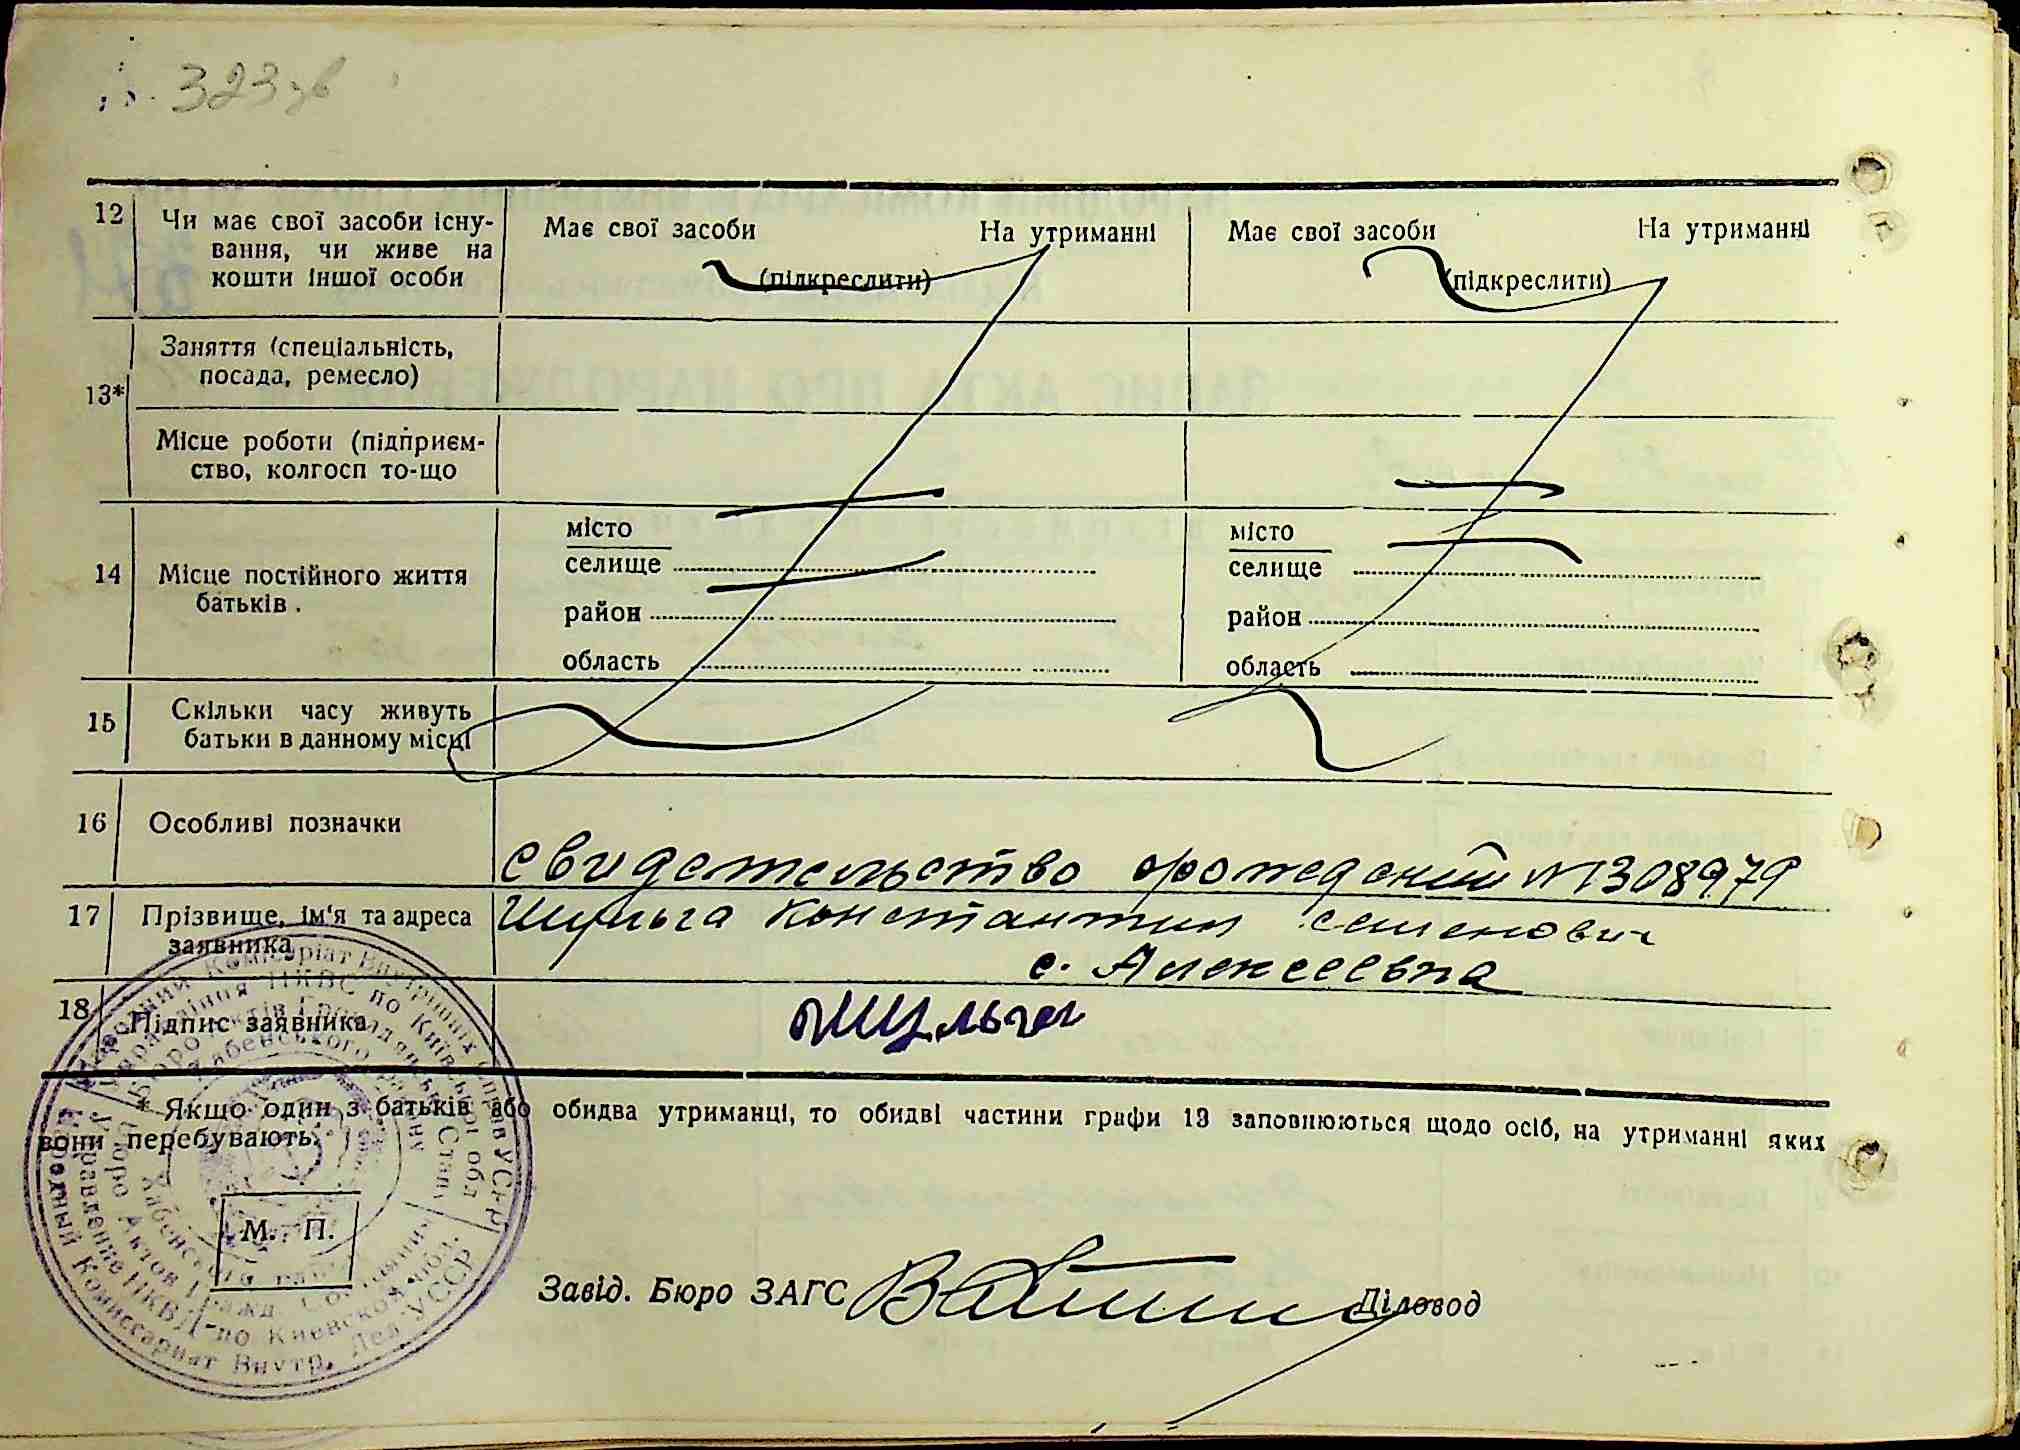 323 зв
12 Чи має свої засоби існу-
вання, чи живе на
кошти іншої особи
Має свої засоби На утриманні
(підкреслити)
Має свої засоби На утриманні
(підкреслити)
13*
Заняття (спеціальність,
посада, ремесло)
Місце роботи (підприєм-
ство, колгосп то-що
14 Місце постійного життя
батьків.
місто
селище
район
область
місто
селище
район
область
15 Скільки часу живуть
батьки в данному місці
16 Особливі позначки
свидетельство орождении №1308979
17 Прізвище, ім'я та адреса
заявника
Шульга Константин семенович
с. Алексеевка
18 Підпис заявника
Шульга
* Якщо один з батьків або обидва утриманці, то обидві частини графи 13 заповнюються щодо осіб, на утриманні яких
вони перебувають.
М. П.
Народний Комісаріат Внутрішніх Справ УСРР
Управління НКВС по Київській обл
Бюро Актів Громадянськ. Стану
Хабенського району
Хабенского рай
Бюро Актов Гражд. Состояния
Управление НКВД по Киевской обл.
Народный Комиссариат Внутр. Дел УССР
Завід. Бюро ЗАГС Діловод